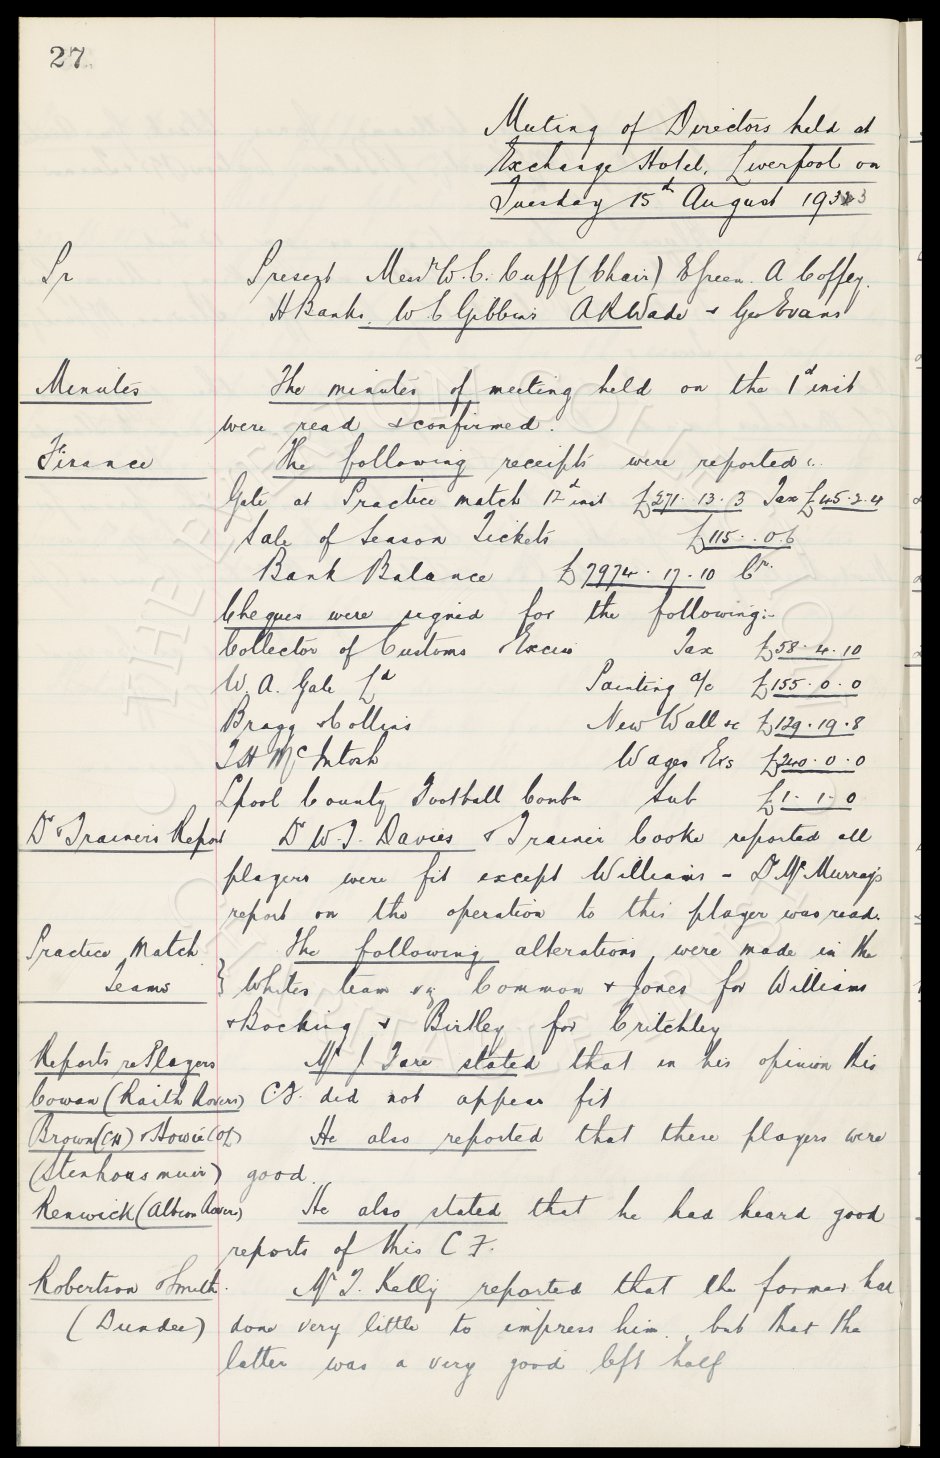 27
Meeting of Directors held at
Exchange Hotel, Liverpool on
Tuesday 15th August 1933
Pr Present Messrs W. C. Cuff (Chair) E Green. A Coffey.
H Banks. W C Gibbins A R Wade & Geo Evans
Minutes The minutes of meeting held on the 1st inst
were read & confirmed.
Finance The following receipts were reported:.
Gate at Practice match 12th inst £271. 13. 3 Tax £45. 2. 4
Sale of Season Tickets £115. . 0. 6
Bank Balance £7974. 17. 10 Cr.
Cheques were signed for the following:-
Collector of Customs & Excise Tax £58. 4. 10
W. A. Gale Ld Painting a/c £155. 0. 0
Bragg & Collins New Wall &c £129. 19. 8
T H McIntosh Wages Exs £240. 0. 0
Lpool County Football Combn Sub £1. 1. 0
Dr & Trainers Report Dr W. J. Davies & Trainer Cooke reported all
players were fit except Williams - Dr McMurray's
report on the operation to this player was read.
Practice Match The following alterations were made in the
Teams } Whites team vz Common & Jones for Williams
& Bocking & Birtley for Critchley
Reports re Players Mr J Tare stated that in his opinion this
Cowan (Raith Rovers) C.F. did not appear fit
Brown (CH) & Howie (OL) He also reported that these players were
(Stenhousmuir) good.
Renwick (Albion Rovers) He also stated that he had heard good
reports of this C F.
Robertson & Smith. Mr T. Kelly reported that the former had
(Dundee) done very little to impress him, but that the
latter was a very good left half